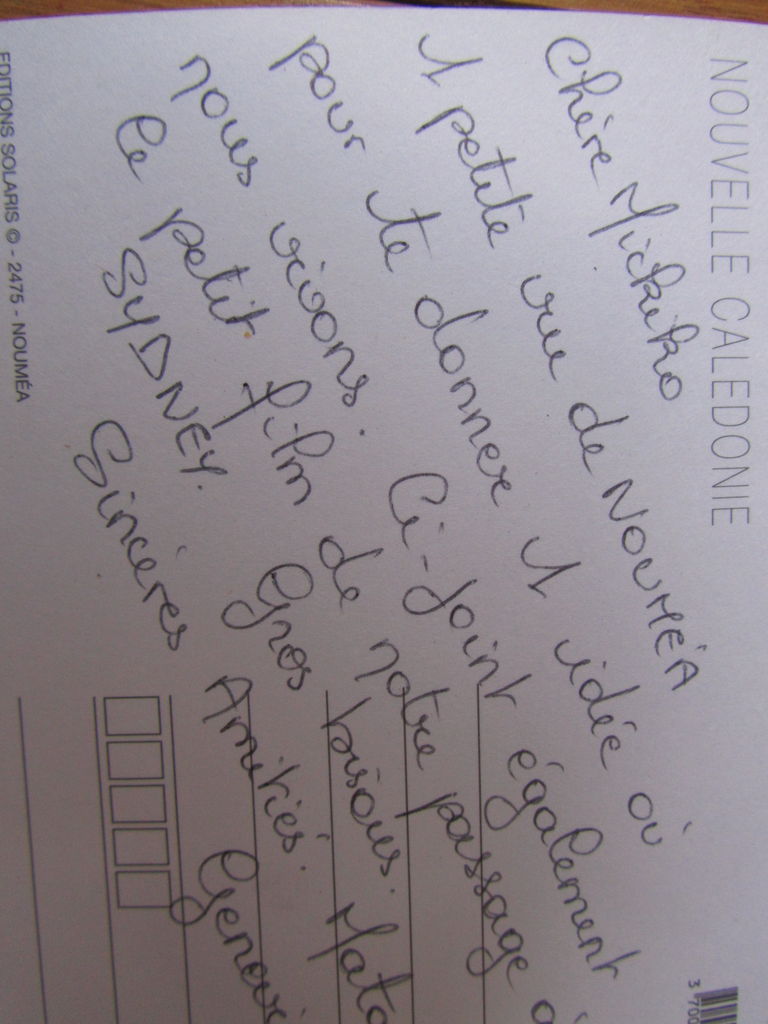 NOUVELLE CALEDONIE
Chère Michiko
1 petite vue de NOUMÉA
pour te donner 1 idée où
nous vivons. Ci-joint également
le petit film de notre passage à
SYDNEY. Gros bisous. Mata
Sincères Amitiés. Genevi
EDITIONS SOLARIS © - 2475 - NOUMÉA
3 700